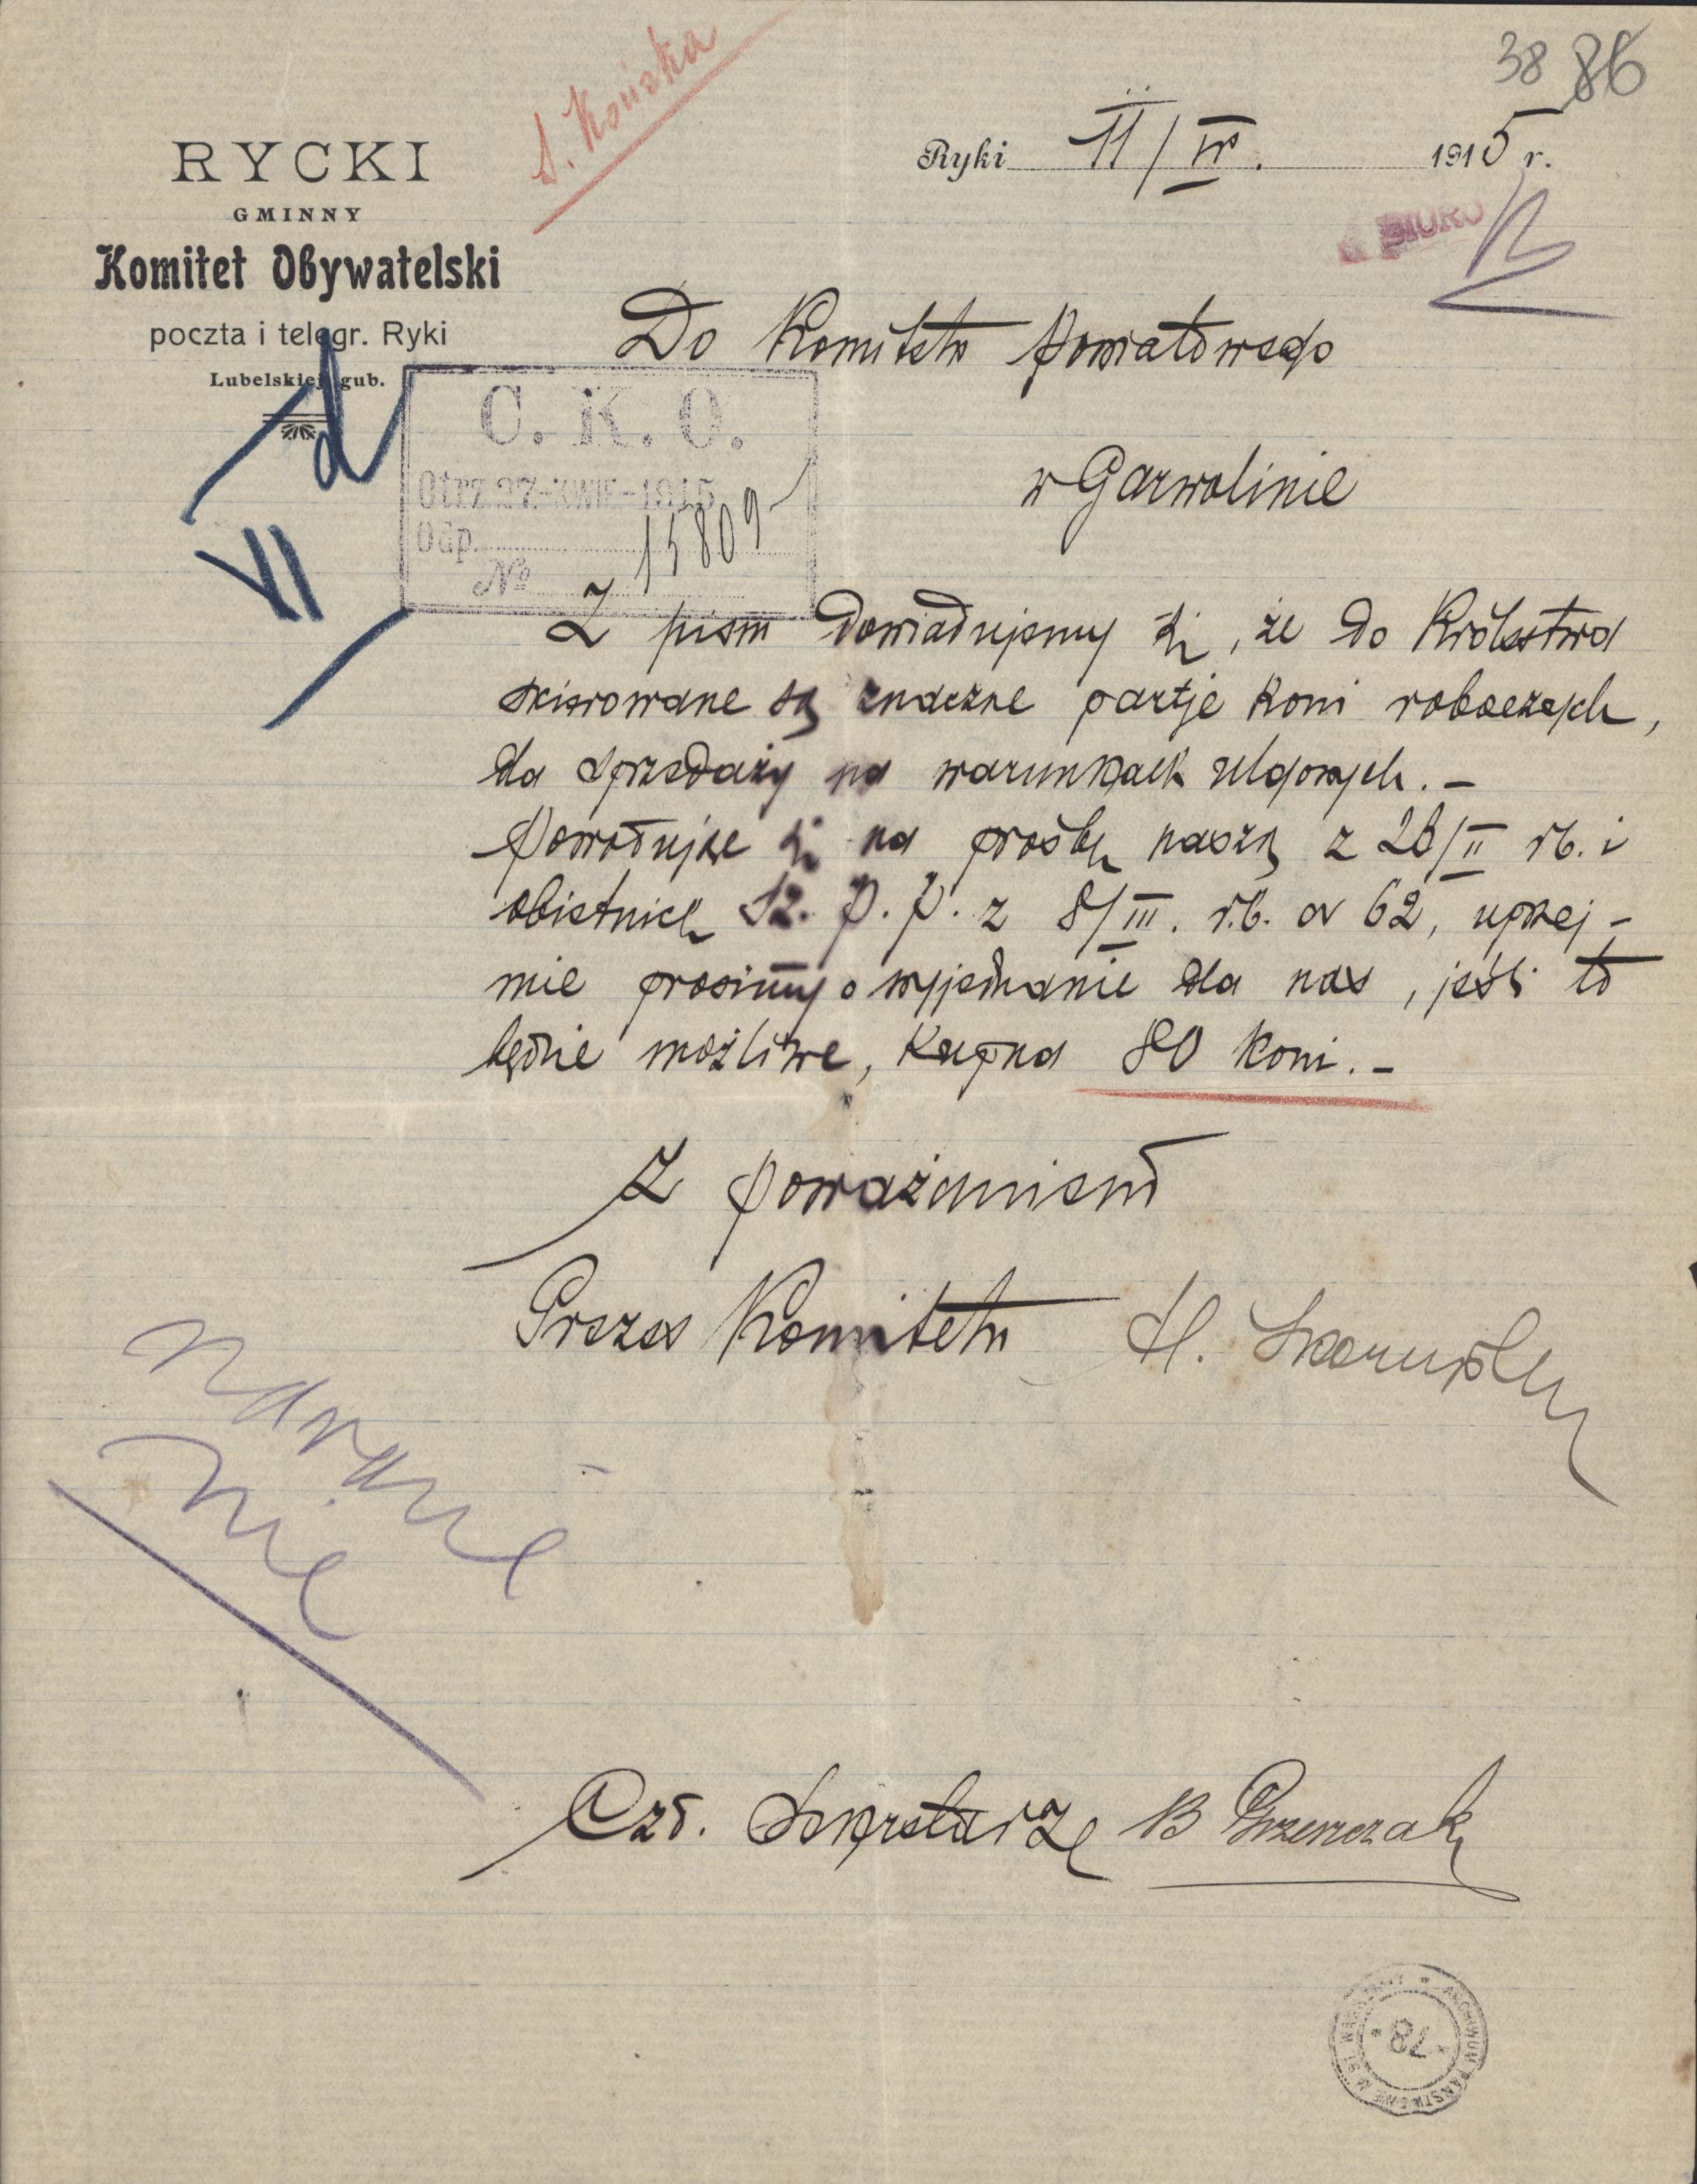 38 86
S. Końska
RYCKI
GMINNY
Komitet Obywatelski
poczta i telegr. Ryki
Lubelskiej gub.
Ryki 11/IV. 1915 r.
BIURO
Do Komitetu Powiatowego
w Garwolinie
C. K. O.
Otrz 27-KWIE-1915
Odp.
№ 15809
VI
Z pism dowiadujemy się, że do Królestwa
skierowane są znaczne partje koni roboczych,
dla sprzedaży na warunkach ulgowych. –
Powołując się na prośbę naszą z 26/II rb. i
obietnicę Sz. P. P. z 8/III. r.b. N 62, uprzej-
mie prosimy o wyjednanie dla nas, jeśli to
będzie możliwe, kupna 80 koni. –
Z poważaniem
Prezes Komitetu H.
narazie
nie
Czł. Sekretarz B Grzenczak
ARCHIWUM PAŃSTWOWE M. ST. WARSZAWY
78